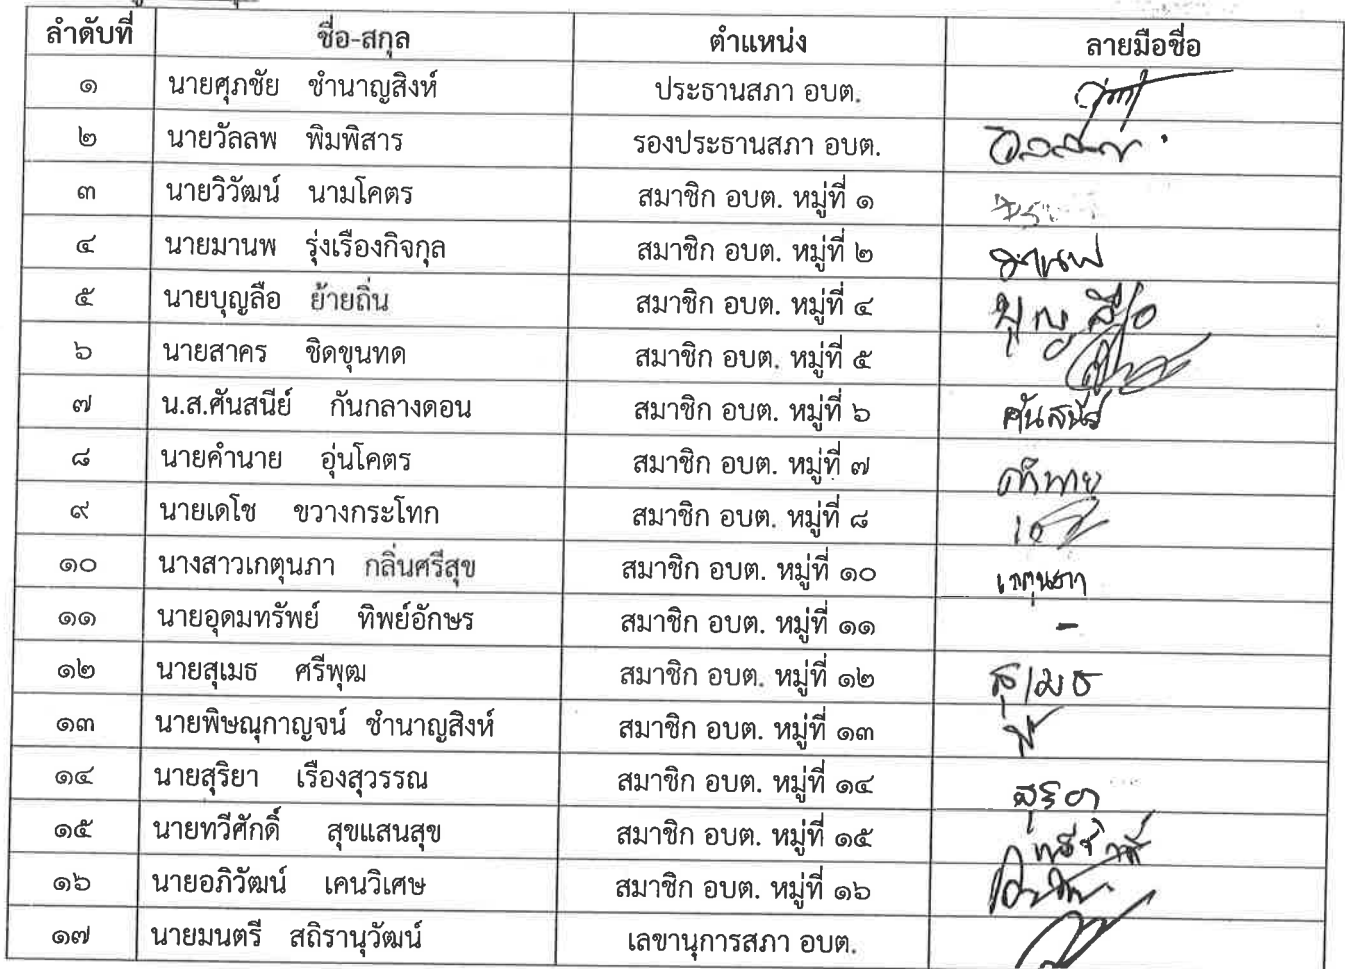 ลำดับที่ ชื่อ-สกุล ตำแหน่ง ลายมือชื่อ
๑ นายศุภชัย ชำนาญสิงห์ ประธานสภา อบต.
๒ นายวัลลพ พิมพิสาร รองประธานสภา อบต.
๓ นายวิวัฒน์ นามโคตร สมาชิก อบต. หมู่ที่ ๑
๔ นายมานพ รุ่งเรืองกิจกุล สมาชิก อบต. หมู่ที่ ๒ มานพ
๕ นายบุญลือ ย้ายถิ่น สมาชิก อบต. หมู่ที่ ๔ บุญลือ
๖ นายสาคร ชิดขุนทด สมาชิก อบต. หมู่ที่ ๕
๗ น.ส.ศันสนีย์ กันกลางดอน สมาชิก อบต. หมู่ที่ ๖ ศันสนีย์
๘ นายคำนาย อุ่นโคตร สมาชิก อบต. หมู่ที่ ๗ คำนาย
๙ นายเดโช ขวางกระโทก สมาชิก อบต. หมู่ที่ ๘
๑๐ นางสาวเกตุนภา กลิ่นศรีสุข สมาชิก อบต. หมู่ที่ ๑๐ เกตุนภา
๑๑ นายอุดมทรัพย์ ทิพย์อักษร สมาชิก อบต. หมู่ที่ ๑๑ -
๑๒ นายสุเมธ ศรีพุฒ สมาชิก อบต. หมู่ที่ ๑๒ สุเมธ
๑๓ นายพิษณุกาญจน์ ชำนาญสิงห์ สมาชิก อบต. หมู่ที่ ๑๓
๑๔ นายสุริยา เรืองสุวรรณ สมาชิก อบต. หมู่ที่ ๑๔ สุริยา
๑๕ นายทวีศักดิ์ สุขแสนสุข สมาชิก อบต. หมู่ที่ ๑๕ ทวีศักดิ์
๑๖ นายอภิวัฒน์ เคนวิเศษ สมาชิก อบต. หมู่ที่ ๑๖
๑๗ นายมนตรี สถิรานุวัฒน์ เลขานุการสภา อบต.